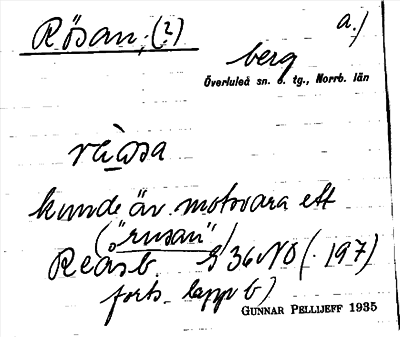 Rösan, (?) a.)
berg
Överluleå sn. o. tg., Norrb. län
kunde äv. motsvara ett
("rusan")
Reäsb. S 36 NO (. 197)
forts. lapp b)
GUNNAR PELLIJEFF 1935